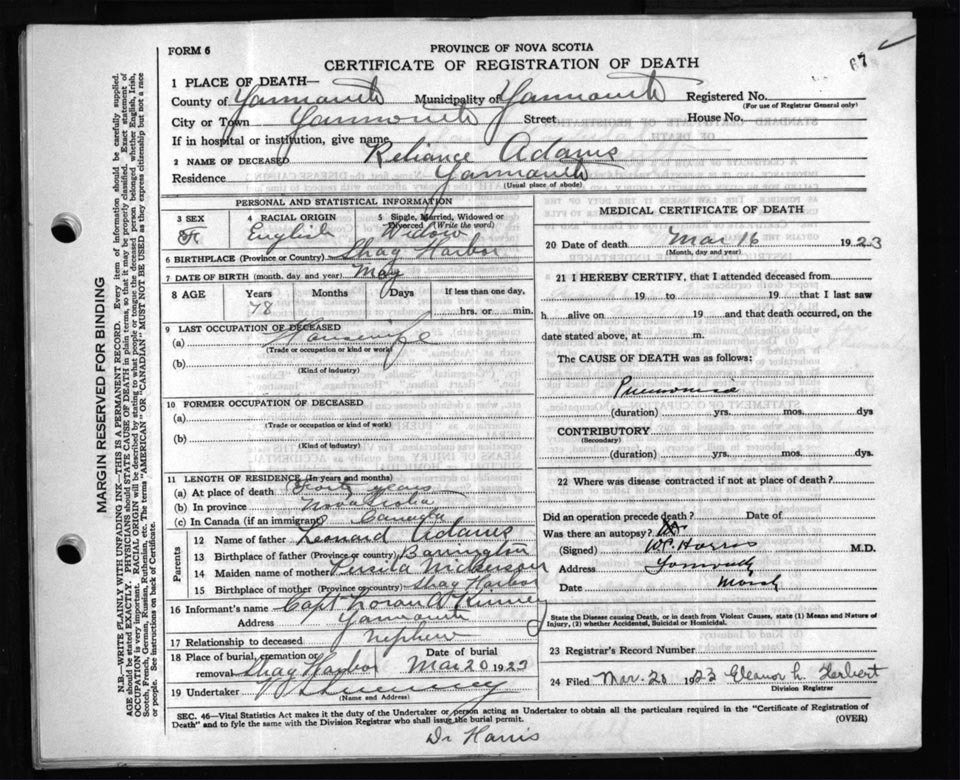 FORM 6
PROVINCE OF NOVA SCOTIA
CERTIFICATE OF REGISTRATION OF DEATH
67
1 PLACE OF DEATH—
County of Yarmouth Municipality of Yarmouth Registered No.
(For use of Registrar General only)
City or Town Yarmouth Street House No.
If in hospital or institution, give name
2 NAME OF DECEASED Reliance Adams
Residence Yarmouth
(Usual place of abode)
PERSONAL AND STATISTICAL INFORMATION
3 SEX 4 RACIAL ORIGIN 5 Single, Married, Widowed or Divorced (Write the word)
F English Widow
6 BIRTHPLACE (Province or Country) Shag Harbor
7 DATE OF BIRTH (month, day, and year) May
8 AGE Years Months Days If less than one day,
78 hrs. or min.
9 LAST OCCUPATION OF DECEASED
(a) Housewife
(Trade or occupation or kind or work)
(b)
(Kind of industry)
10 FORMER OCCUPATION OF DECEASED
(a)
(Trade or occupation or kind or work)
(b)
(Kind of industry)
11 LENGTH OF RESIDENCE (In years and months)
(a) At place of death Forty years
(b) In province Nova Scotia
(c) In Canada (if an immigrant) Canada
Parents
12 Name of father Leonard Adams
13 Birthplace of father (Province or country) Barrington
14 Maiden name of mother Nickerson
15 Birthplace of mother (Province or country) Shag Harbor
16 Informant's name Capt Loran A Kinney
Address Yarmouth
17 Relationship to deceased nephew
18 Place of burial, cremation or Date of burial
removal Shag Harbor Mar 20 1923
19 Undertaker
(Name and Address)
MEDICAL CERTIFICATE OF DEATH
20 Date of death Mar 16 1923
(Month, day and year)
21 I HEREBY CERTIFY, that I attended deceased from
19 to 19 that I last saw
h alive on 19 and that death occurred, on
date stated above, at m.
The CAUSE OF DEATH was as follows:
Pneumonia
(duration) yrs. mos. dys
CONTRIBUTORY
(Secondary)
(duration) yrs. mos. dys.
22 Where was disease contracted if not at place of death?
Did an operation precede death? Date of
Was there an autopsy?
(Signed) Harris M.D.
Address Yarmouth
Date March
State the Disease causing Death, or in death from Violent Causes, state (1) Means and Nature of
Injury, (2) whether Accidental, Suicidal or Homicidal.
23 Registrar's Record Number
24 Filed Mar. 20 1923 Eleanor L. Herbert
Division Registrar
SEC. 46—Vital Statistics Act makes it the duty of the Undertaker or person acting as Undertaker to obtain all the particulars required in the "Certificate of Registration of
Death" and to fyle the same with the Division Registrar who shall issue the burial permit.
(OVER)
Dr Harris
MARGIN RESERVED FOR BINDING
N.B.—WRITE PLAINLY WITH UNFADING INK—THIS IS A PERMANENT RECORD. Every item of information should be carefully supplied.
AGE should be stated EXACTLY. PHYSICIANS should STATE CAUSE OF DEATH in plain terms, so that it may be properly classified. Exact statement of
OCCUPATION is very important. RACIAL ORIGIN will be described by stating to what people or tongue the deceased person belonged whether English, Irish,
Scotch, French, German, Russian, Ruthenian, etc. The terms "AMERICAN" OR "CANADIAN" MUST NOT BE USED as they express citizenship but not a race
or people. See instructions on back of Certificate.